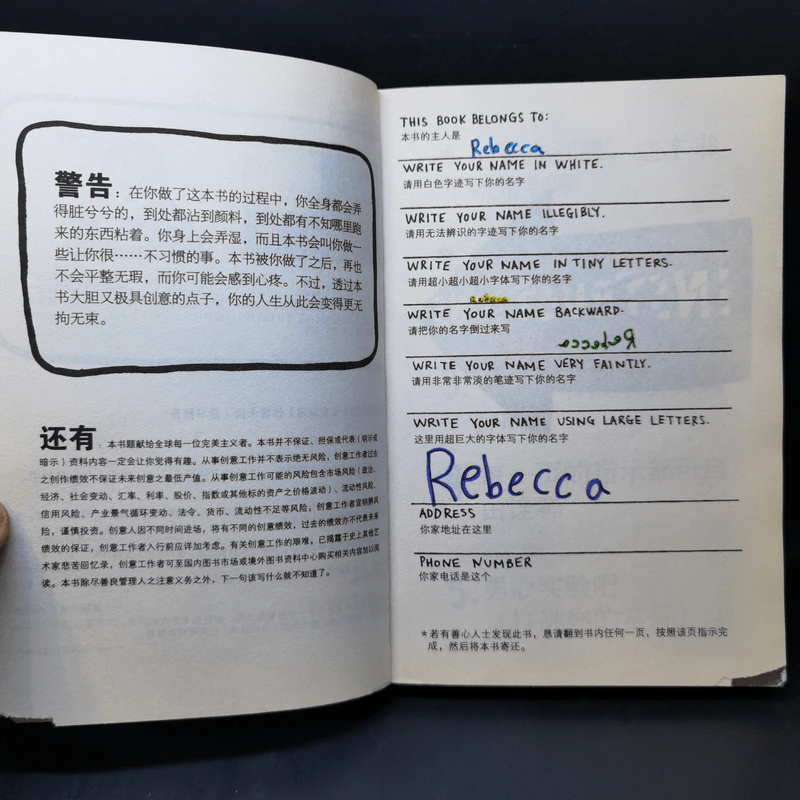 警告：在你做了这本书的过程中，你全身都会弄
得脏兮兮的，到处都沾到颜料，到处都有不知哪里跑
来的东西粘着。你身上会弄湿，而且本书会叫你做一
些让你很……不习惯的事。本书被你做了之后，再也
不会平整无瑕，而你可能会感到心疼。不过，透过本
书大胆又极具创意的点子，你的人生从此会变得更无
拘无束。
还有：本书题献给全球每一位完美主义者。本书并不保证、担保或代表（明示或
暗示）资料内容一定会让你觉得有趣。从事创意工作并不表示绝无风险，创意工作者过去
之创作绩效不保证未来创意之最低产值。从事创意工作可能的风险包含市场风险（政治、
经济、社会变动、汇率、利率、股价、指数或其他标的资产之价格波动）、流动性风险、
信用风险、产业景气循环变动、法令、货币、流动性不足等风险，创意工作者宜明辨风
险，谨慎投资。创意人因不同时间进场，将有不同的创意绩效，过去的绩效亦不代表未来
绩效的保证，创意工作者入行前应详加考虑。有关创意工作的艰难，已揭露于史上其他艺
术家悲苦回忆录，创意工作者可至国内图书市场或境外图书资料中心购买相关内容加以阅
读。本书除尽善良管理人之注意义务之外，下一句该写什么就不知道了。
THIS BOOK BELONGS TO:
本书的主人是
Rebecca
WRITE YOUR NAME IN WHITE.
请用白色字迹写下你的名字
WRITE YOUR NAME ILLEGIBLY.
请用无法辨识的字迹写下你的名字
WRITE YOUR NAME IN TINY LETTERS.
请用超小超小超小字体写下你的名字
Rebecca
WRITE YOUR NAME BACKWARD.
请把你的名字倒过来写
Rebecca
WRITE YOUR NAME VERY FAINTLY.
请用非常非常淡的笔迹写下你的名字
WRITE YOUR NAME USING LARGE LETTERS.
这里用超巨大的字体写下你的名字
Rebecca
ADDRESS
你家地址在这里
PHONE NUMBER
你家电话是这个
*若有善心人士发现此书，恳请翻到书内任何一页，按照该页指示完
成，然后将本书寄还。